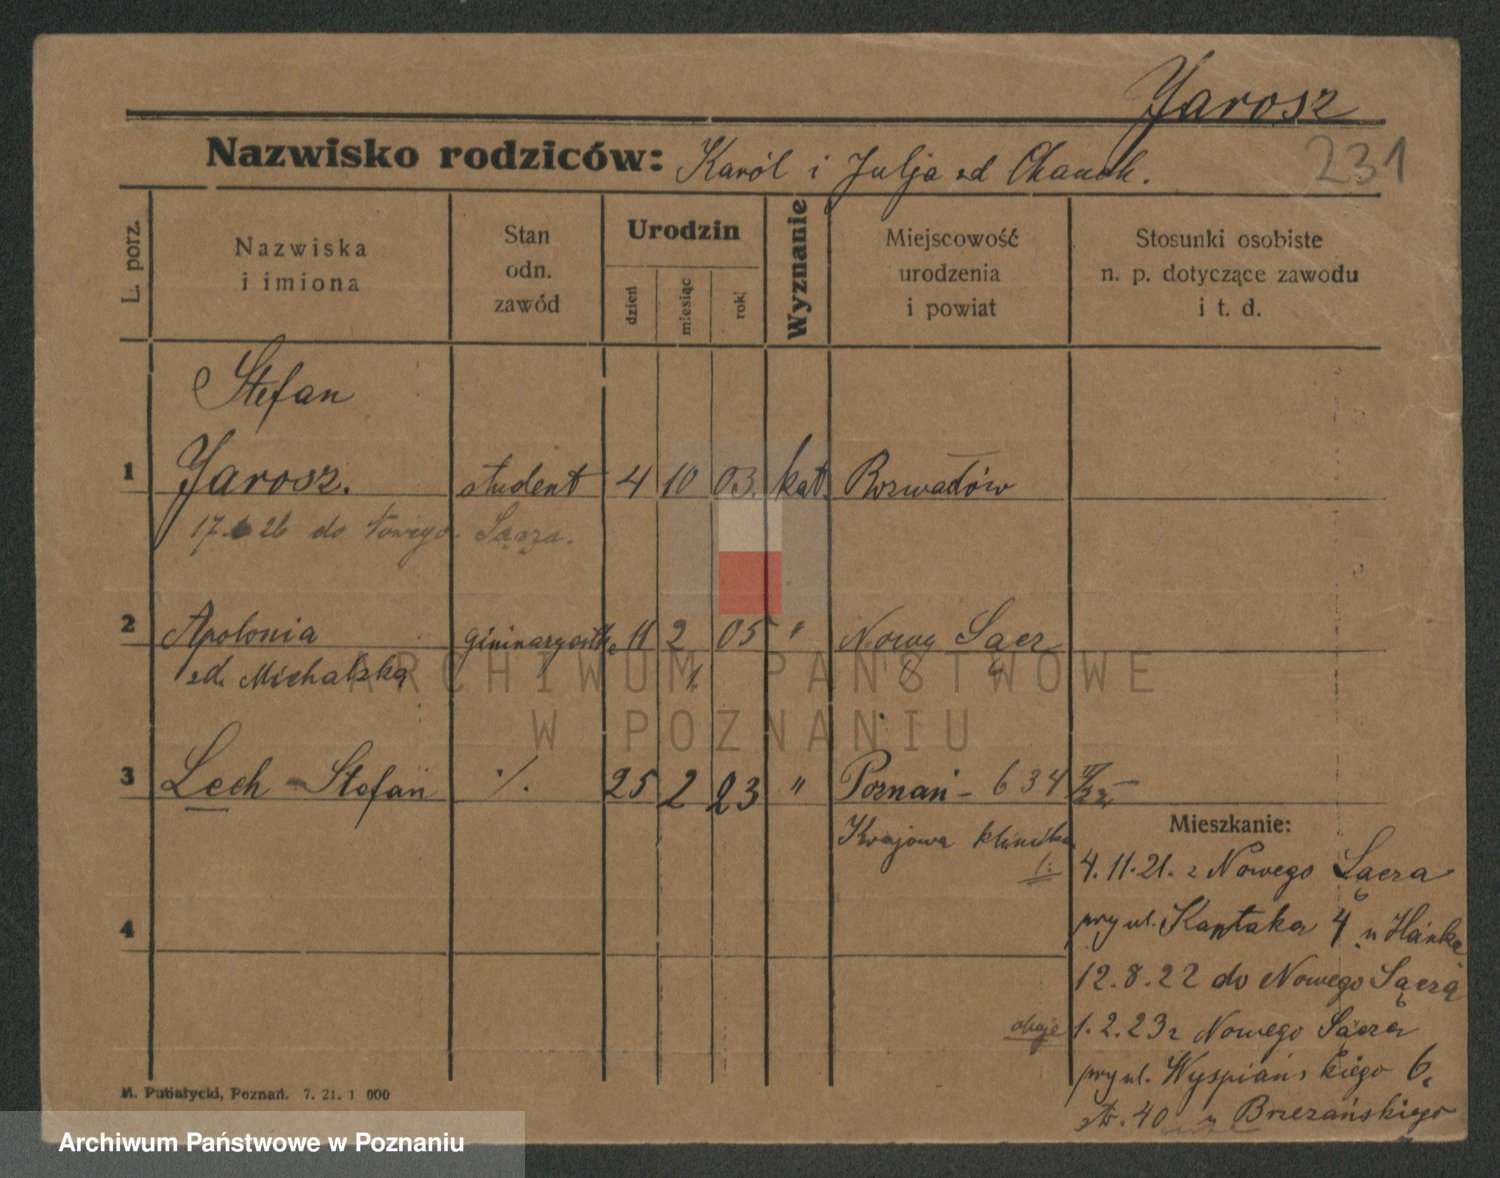 Jarosz
231
Nazwisko rodziców: Karól i Julja
L. porz.
Nazwiska i imiona
Stan odn. zawód
Urodzin
dzień
miesiąc
rok
Wyznanie
Miejscowość urodzenia i powiat
Stosunki osobiste n. p. dotyczące zawodu i t. d.
Stefan
1 Jarosz. student 4 10 03. kat. Rozwadów
17. 26 do Nowego Sącza.
2 Apolonia 11 2 05 " Nowy Sącz
Michalska
3 Lech - Stefan ./. 25 2 23 " Poznań - 634
Krajowa klinika
Mieszkanie:
4. 11. 21. z Nowego Sącza
przy ul. Kantaka 4 u Hanke
12. 8. 22 do Nowego Sącza
oboje 1. 2. 23 z Nowego Sącza
przy ul. Wyspiańskiego 6,
40 u Brzezańskiego
4
M. Putiatycki, Poznań. 7. 21. 1 000
ARCHIWUM PAŃSTWOWE
W POZNANIU
Archiwum Państwowe w Poznaniu